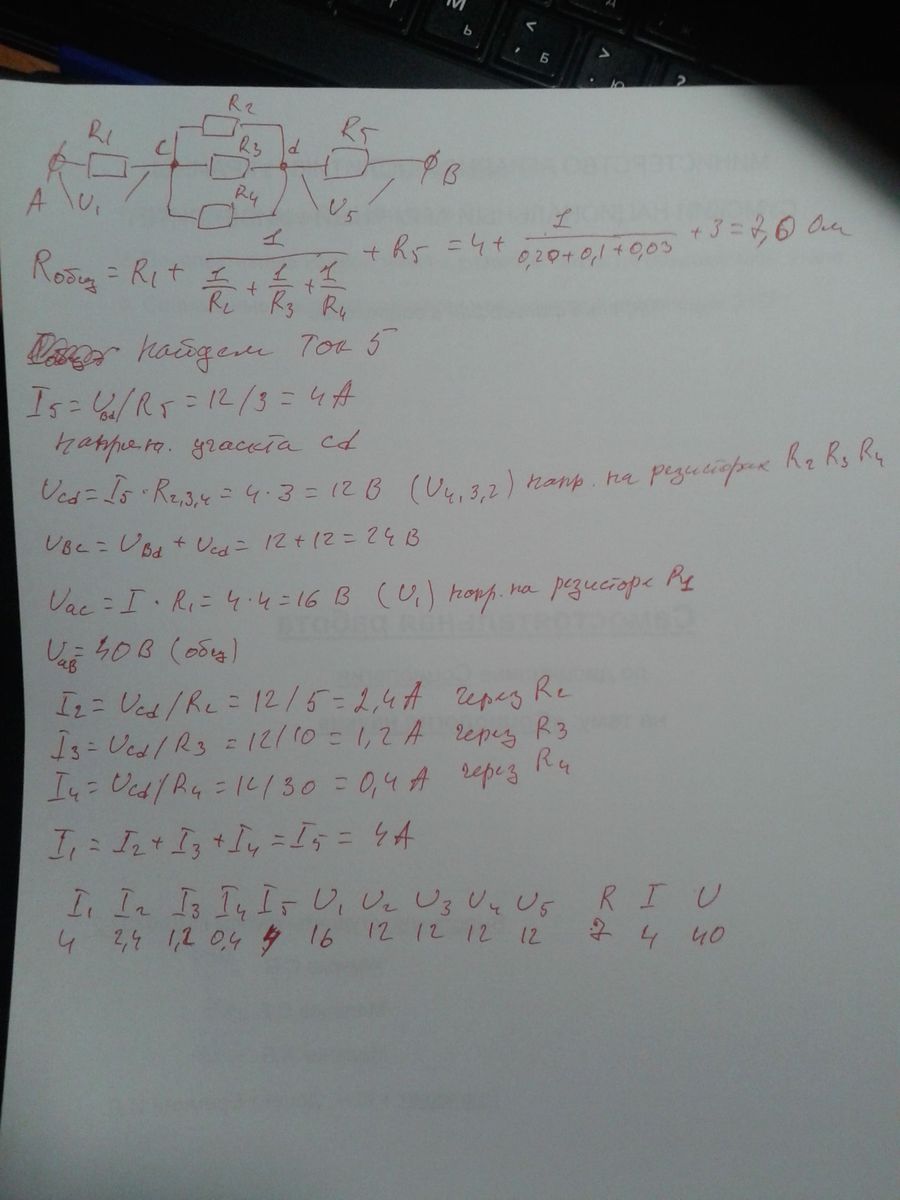 R2
R1 c R3 d R5
A U1 R4 U5 B
Rобщ = R1 + 1/(1/R2 + 1/R3 + 1/R4) + R5 = 4 + 1/(0,20+0,1+0,03) + 3 = 7,0 Ом
Найдем ток 5
I5 = UBd/R5 = 12/3 = 4 А
напряж. участка cd
Ucd = I5 · R2,3,4 = 4·3 = 12 В (U4,3,2) напр. на резисторах R2 R3 R4
UBc = UBd + Ucd = 12+12 = 24 В
Uac = I · R1 = 4·4 = 16 В (U1) напр. на резисторе R1
UaB = 40 В (общ)
I2 = Ucd/R2 = 12/5 = 2,4 А через R2
I3 = Ucd/R3 = 12/10 = 1,2 А через R3
I4 = Ucd/R4 = 12/30 = 0,4 А через R4
I1 = I2 + I3 + I4 = I5 = 4 А
I1 I2 I3 I4 I5 U1 U2 U3 U4 U5 R I U
4 2,4 1,2 0,4 4 16 12 12 12 12 7 4 40
Самостоятельная работа